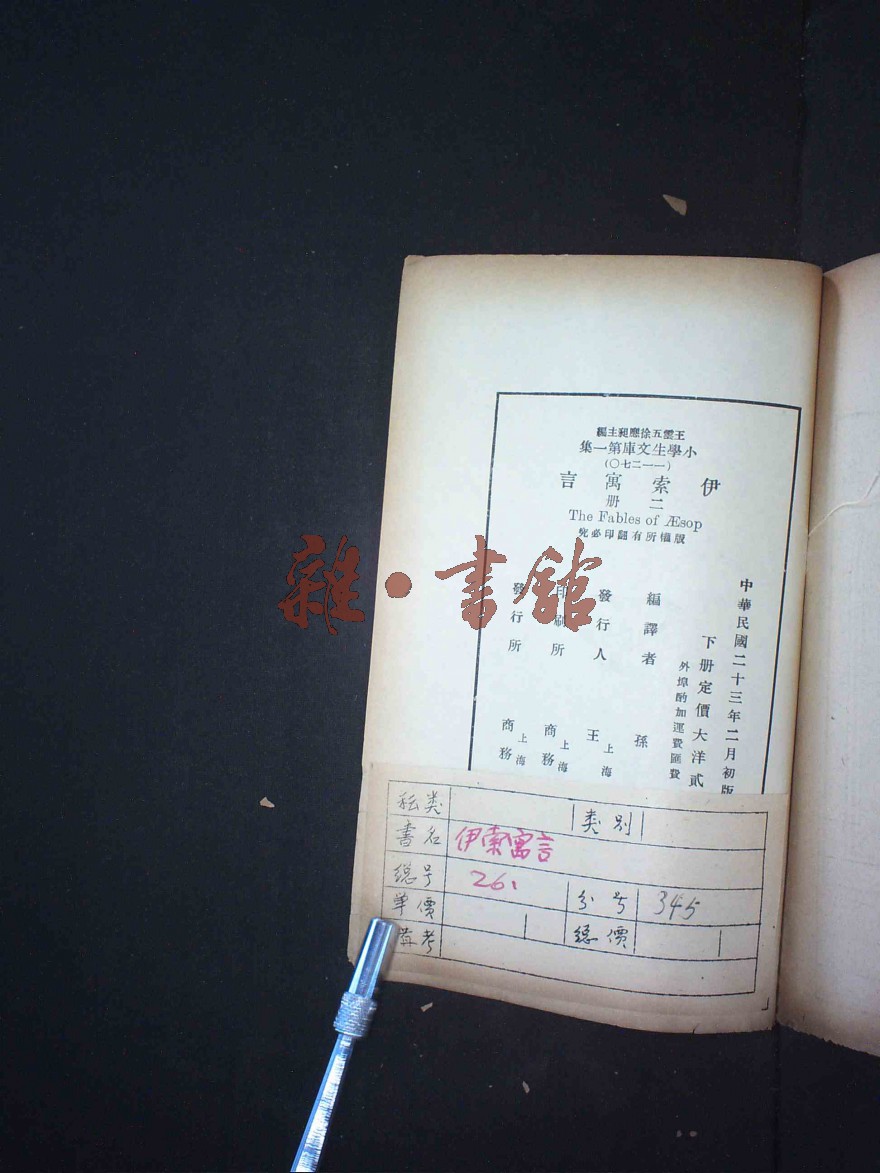 王雲五徐應昶主編
小學生文庫第一集
(一一二七〇)
伊索寓言
二册
The Fables of Æsop
版權所有翻印必究
中華民國二十三年二月初版
下册定價大洋貳
外埠酌加運費匯費
編譯者 孫
發行人 上海 王
印刷所 上海 商務
發行所 上海 商務
雜·書館
类 类别
書名 伊索寓言
總号 26. 分号 345
单價 總價
俻考